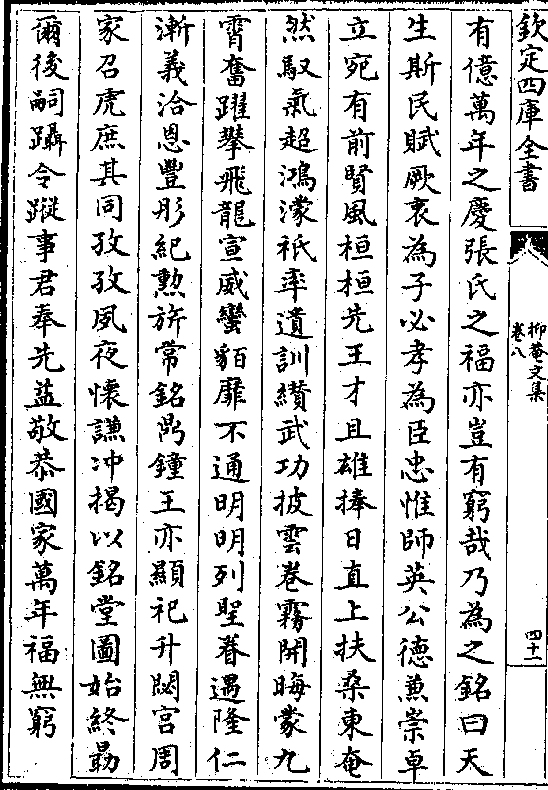 欽定四庫全書
抑菴文集
卷八
四十一
有億萬年之慶張氏之福亦豈有窮哉乃為之銘曰天
生斯民賦厥衷為子必孝為臣忠惟師英公德兼崇卓
立宛有前賢風桓桓先王才且雄捧日直上扶桑東奄
然馭氣超鴻濛祇率遺訓纘武功披雲卷霧開晦蒙九
霄奮躍攀飛龍宣威蠻貊靡不通明明列聖眷遇隆仁
漸義洽恩豐彤紀勲旂常銘鼎鐘王亦顯祀升閟宮周
家召虎庶其同孜孜夙夜懷謙冲揭以銘堂圖始終勗
爾後嗣躡令蹤事君奉先益敬恭國家萬年福無窮